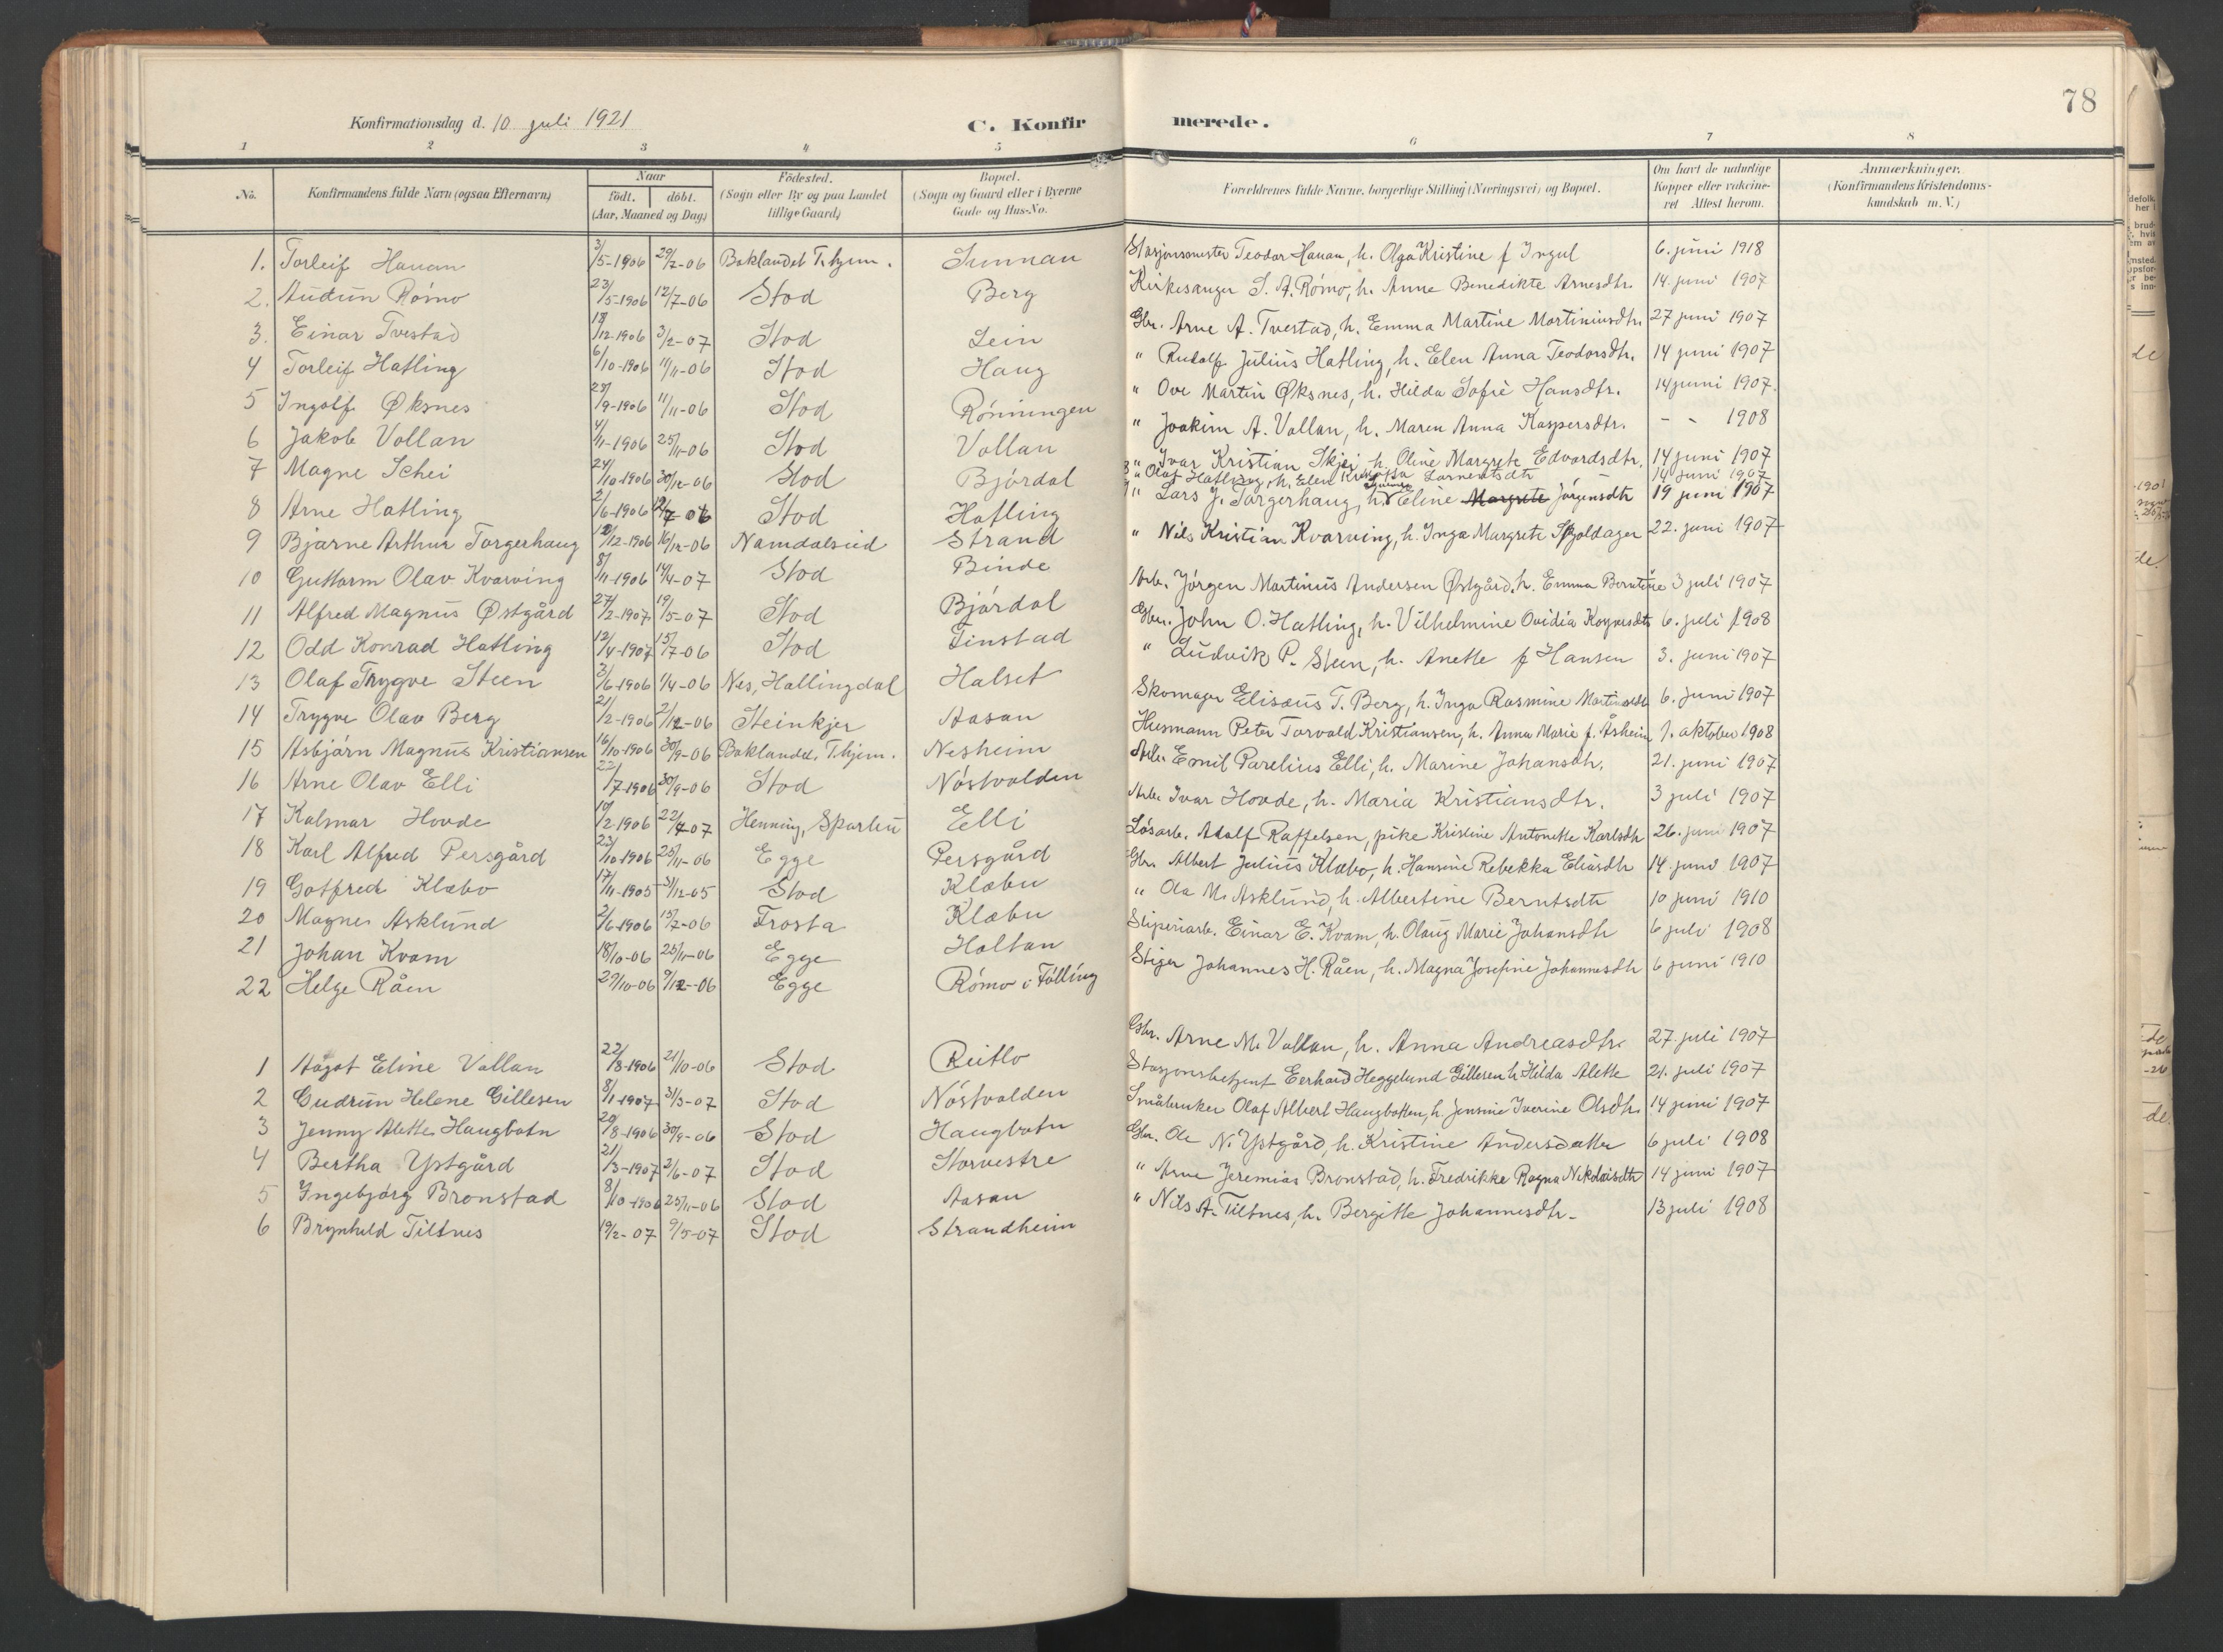 78
Konfirmationsdag d. 10 juli 1921
C. Konfirmerede.
1 2 3 4 5 6 7 8
No. Konfirmandens fulde Navn (ogsaa Efternavn) Naar födt. döbt. (Aar, Maaned og Dag) Födested. (Sogn eller By og paa Landet tillige Gaard) Bopæl. (Sogn og Gaard eller i Byerne Gade og Hus-No. Forældrenes fulde Navne, borgerlige Stilling (Næringsvei) og Bopæl. Om havt de naturlige Kopper eller vakcineret Attest herom. Anmærkninger. (Konfirmandens Kristendomskundskab m. V.)
1. Torleif Hanan 3/5-1906 29/7-06 Baklandet T.hjem. Sunnan Stasjonsmester Teodor Hanan, h. Olga Kristine f Ingul 6. juni 1918
2. Audun Rómo 23/5-1906 12/7-06 Stod Berg Kirkesanger S. A. Rómo, h. Anne Benedikte Arnesdtr. 14. juni 1907
3. Einar Tvestad 18/12-1906 3/2-07 Stod Lein Gbr. Arne A. Tvestad, h. Emma Martine Martiniusdtr. 27 juni 1907
4 Torleif Hatling 6/10-1906 11/11-06 Stod Haug " Rudolf Julius Hatling, h. Elen Anna Teodorsdtr. 14 juni 1907
5 Ingolf Øksnes 23/9-1906 11/11-06 Stod Rónningen " Ove Martin Øksnes, h. Hilda Sofie Hansdtr. 14 juni 1907.
6 Jakob Vollan 4/11-1906 25/11-06 Stod Vollan " Joakim A. Vollan, h. Maren Anna Kaspersdtr. - - 1908
7 Magne Schei 24/10-1906 30/12-06 Stod Bjórdal " Ivar Kristian Skjei, h. Oline Margrete Edvardsdtr. 14 juni 1907
8 Arne Hatling 2/6-1906 12/7-06 Stod Hatling 8 " Olaf Hatling, h. Elen 14 juni 1907
9 Bjarne Arthur Torgerhaug 12/12-1906 16/12-06 Namdalseid Strand 9 " Lars J. Torgerhaug, h. Eline Margrete Jórgensdtr 19 juni 1907
10 Guttorm Olav Kvarving 8/11-1906 14/4-07 Stod Binde " Nils Kristian Kvarving, h. Inga Margrete Skjoldager 22. juni 1907
11 Alfred Magnus Østgård 27/2-1907 19/5-07 Stod Bjórdal Arb. Jórgen Martinus Andersen Østgård, h. Emma Berntine 3 juli 1907
12 Odd Konrad Hatling 12/4-1907 15/7-06 Stod Finstad Gbr. John O. Hatling, h. Vilhelmine Ovidia 6. juli 1908
13 Olaf Trygve Steen 3/6-1906 1/4-06 Nes, Hallingdal Halset " Ludvik P. Steen, h. Anette f Hansen 3. juni 1907
14 Trygve Olav Berg 21/2-1906 2/12-06 Steinkjer Aasan Skomager Elisæus T. Berg, h. Inga Rasmine Martinsdtr 6. juni 1907
15 Asbjórn Magnus Kristiansen 16/10-1906 30/9-06 Baklandet, T.hjem. Nesheim Husmann Peter Torvald Kristiansen, h. Anna Marie f. Åsheim 1. oktober 1908
16 Arne Olav Elli 22/7-1906 30/9-06 Stod Nóstvolden Arb. Emil Parelius Elli, h. Marine Johansdtr. 21. juni 1907
17 Kalmar Hovde 19/2 1906 22/4-07 Henning, Sparbu Elli Arb. Ivar Hovde, h. Maria Kristiansdtr. 3 juli 1907
18 Karl Alfred Persgård 23/10-1906 25/11-06 Egge Persgård Lósarb. Adolf Raffelsen, pike Kristine Antonette Karlsdtr 26. juni 1907
19 Gotfred Klæbo 17/11-1905 31/12-05 Stod Klæbu Gbr. Albert Julius Klæbo, h. Hansine Rebekka Eliasdtr 14. juni 1907
20 Magnes Asklund 2/6-1906 15/7-06 Frosta Klæbu " Ola M. Asklund, h. Albertine Berntsdtr 10 juni 1910
21 Johan Kvam 18/10-06 25/11-06 Egge Holtan Sliperiarb. Einar E. Kvam, h. Olaug Marie Johansdtr 6 juli 1908
22 Helge Råen 27/10-06 9/12-06 Egge Rómo i Fólling Stiger Johannes H. Råen, h. Magna Josefine Johannesdtr 6 juni 1910
1 Aagot Eline Vallan 22/8-1906 21/10-06 Stod Reitlo Gbr. Arne M. Vallan, h. Anna Andreasdtr. 27. juli 1907
2 Gudrun Helene Gillesen 8/1-1907 31/3-07 Stod Nóstvolden Stasjonsbetjent Eerhard Heggelund Gillesen h. Hilda Alette 21. juli 1907
3 Jenny Alette Haugbotn 29/8-1906 30/9-06 Stod Haugbotn Småbruker Olaf Albert Haugbotten, h. Jensine Iverine Olsdtr. 14 juni 1907
4 Bertha Ystgård 21/3-1907 2/6-07 Stod Storvestre Gbr. Ole N. Ystgård, h. Kristine Andersdatter 6 juli 1908
5 Ingebjórg Bronstad 8/10-1906 25/11-06 Stod Aasan " Arne Jeremias Bronstad, h. Fredrikke Ragna Nikolaisdtr 14 juni 1907
6 Brynhild Tiltnes 19/2-07 9/5-07 Stod Strandheim " Nils A. Tiltnes, h. Bergitte Johannesdtr. 13 juli 1908